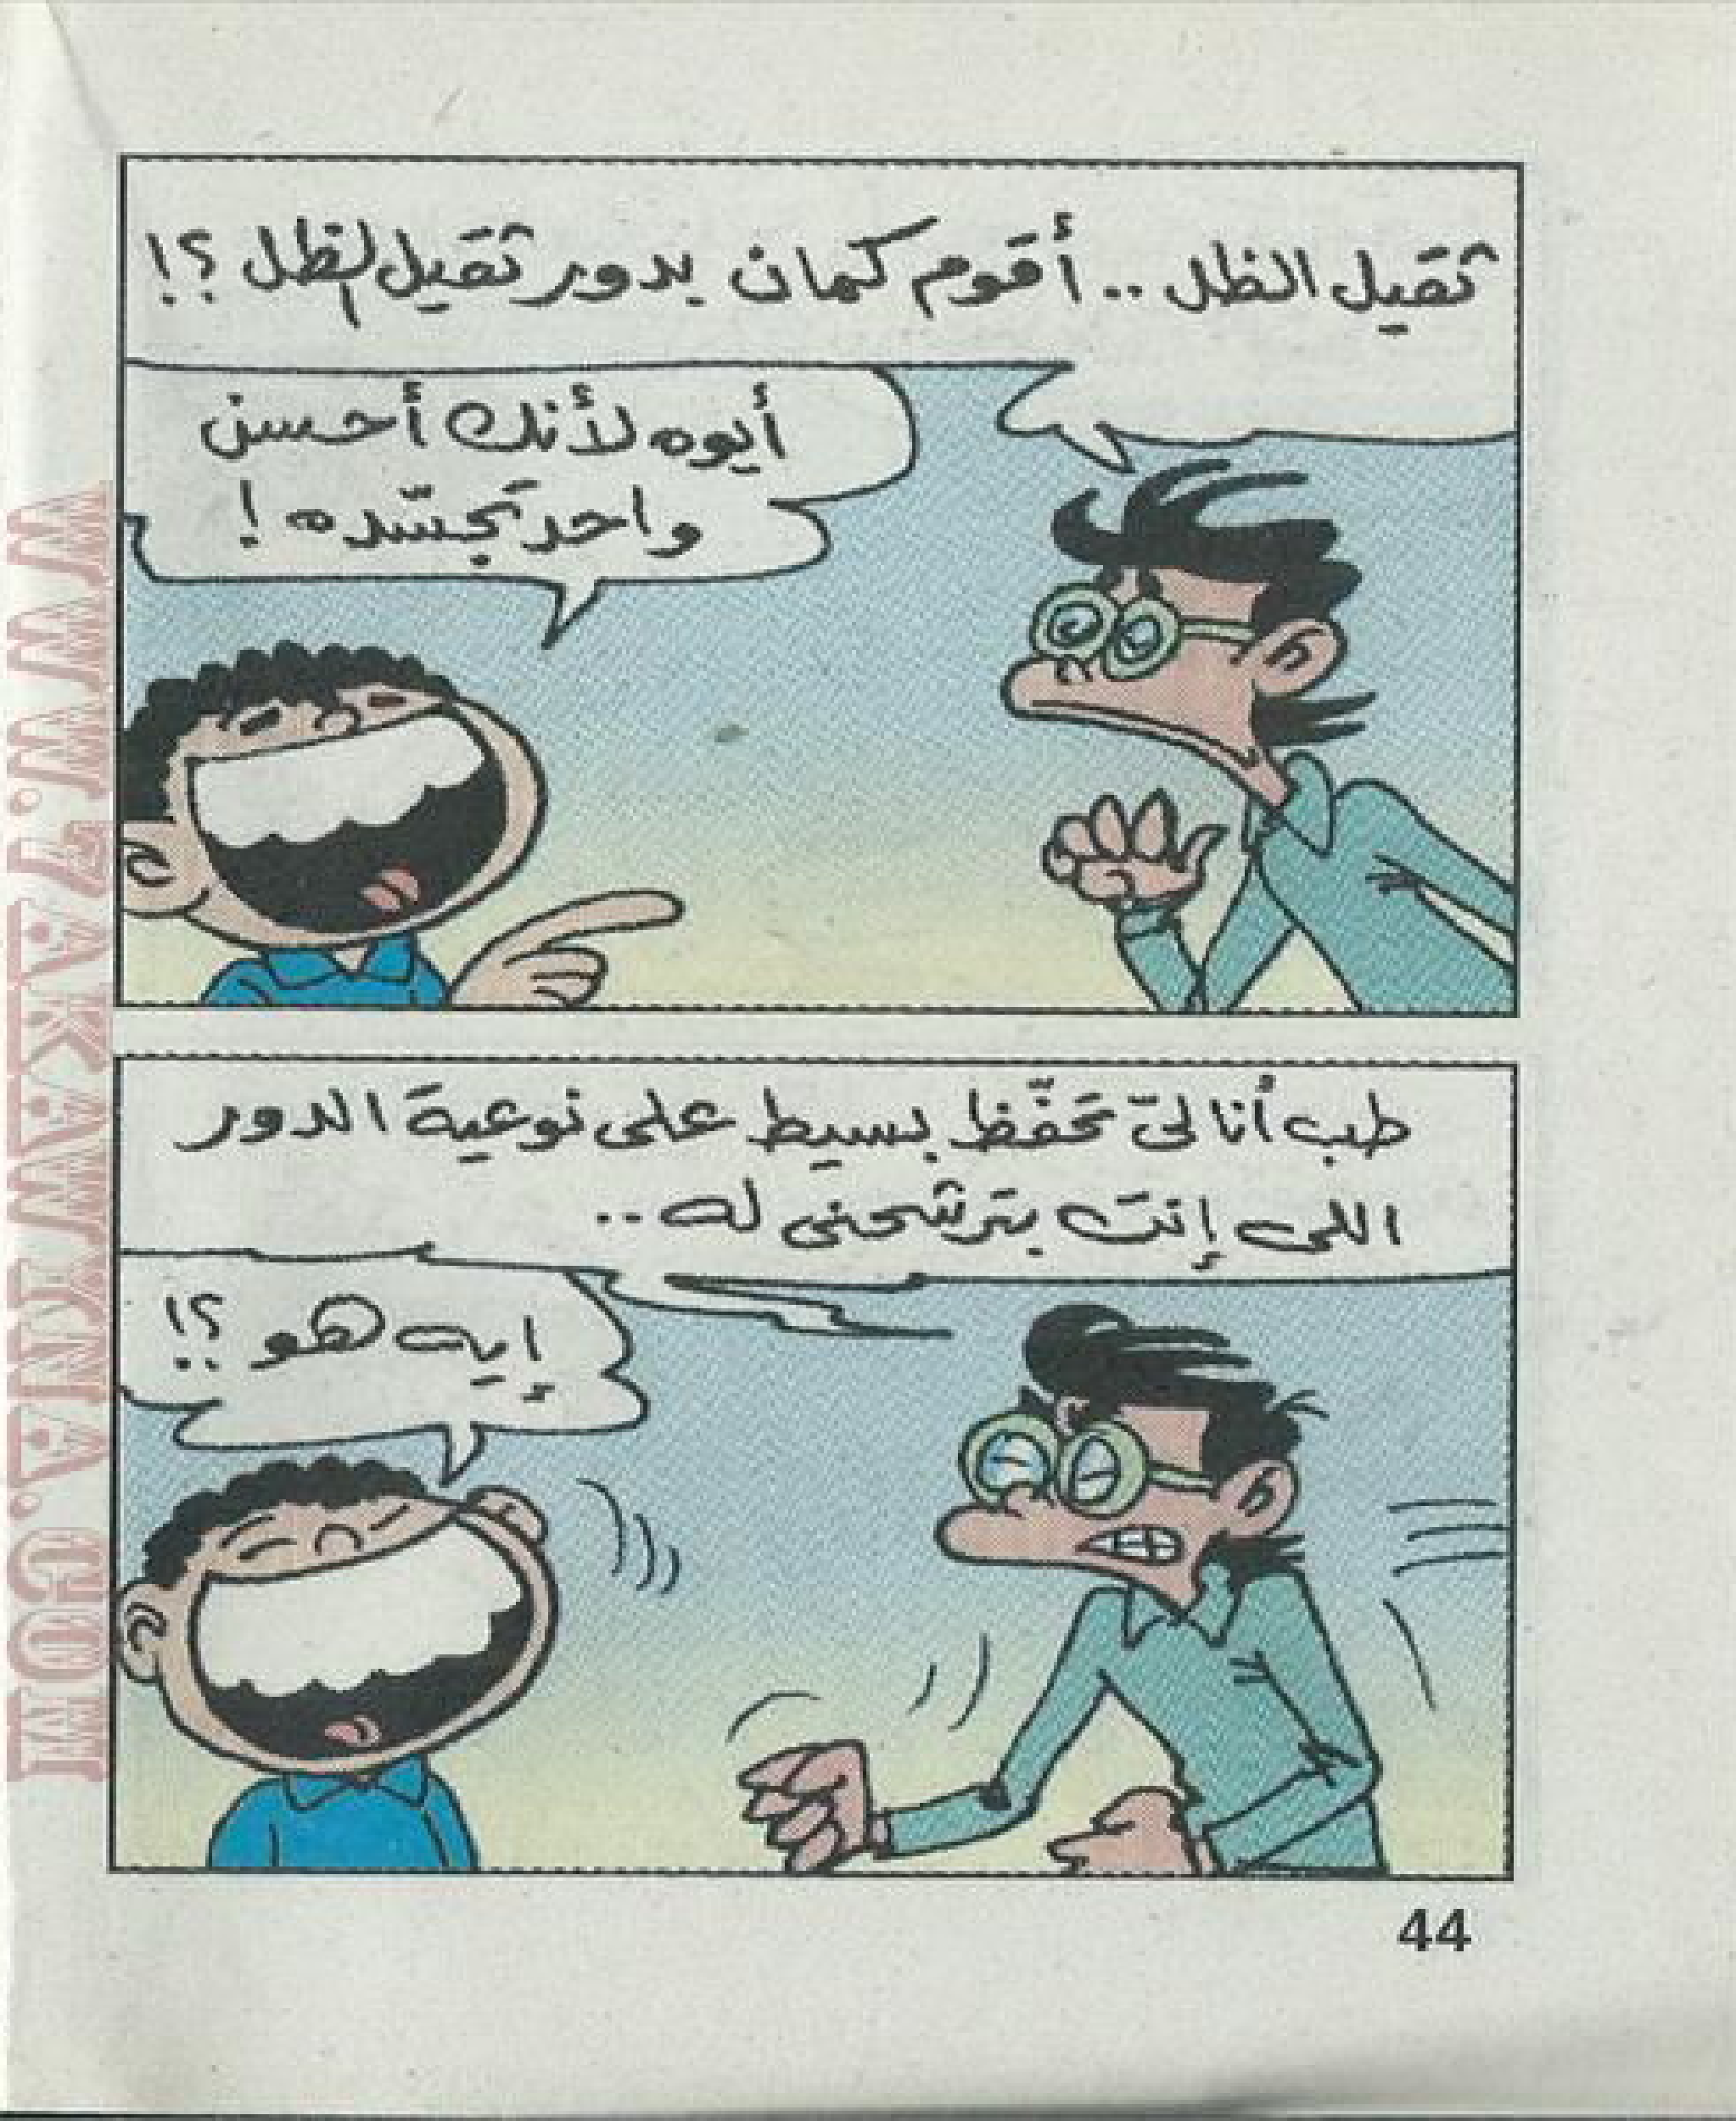 ثقيل الظل .. أقوم كمان بدور ثقيل الظل ؟!
أيوه لأنك أحسن
واحد تجسّده !
طب أنا ليّ تحفّظ بسيط على نوعية الدور
اللى إنت بترشحنى له ..
إيه هو ؟!
44
WWW.7AKAWINA.COM